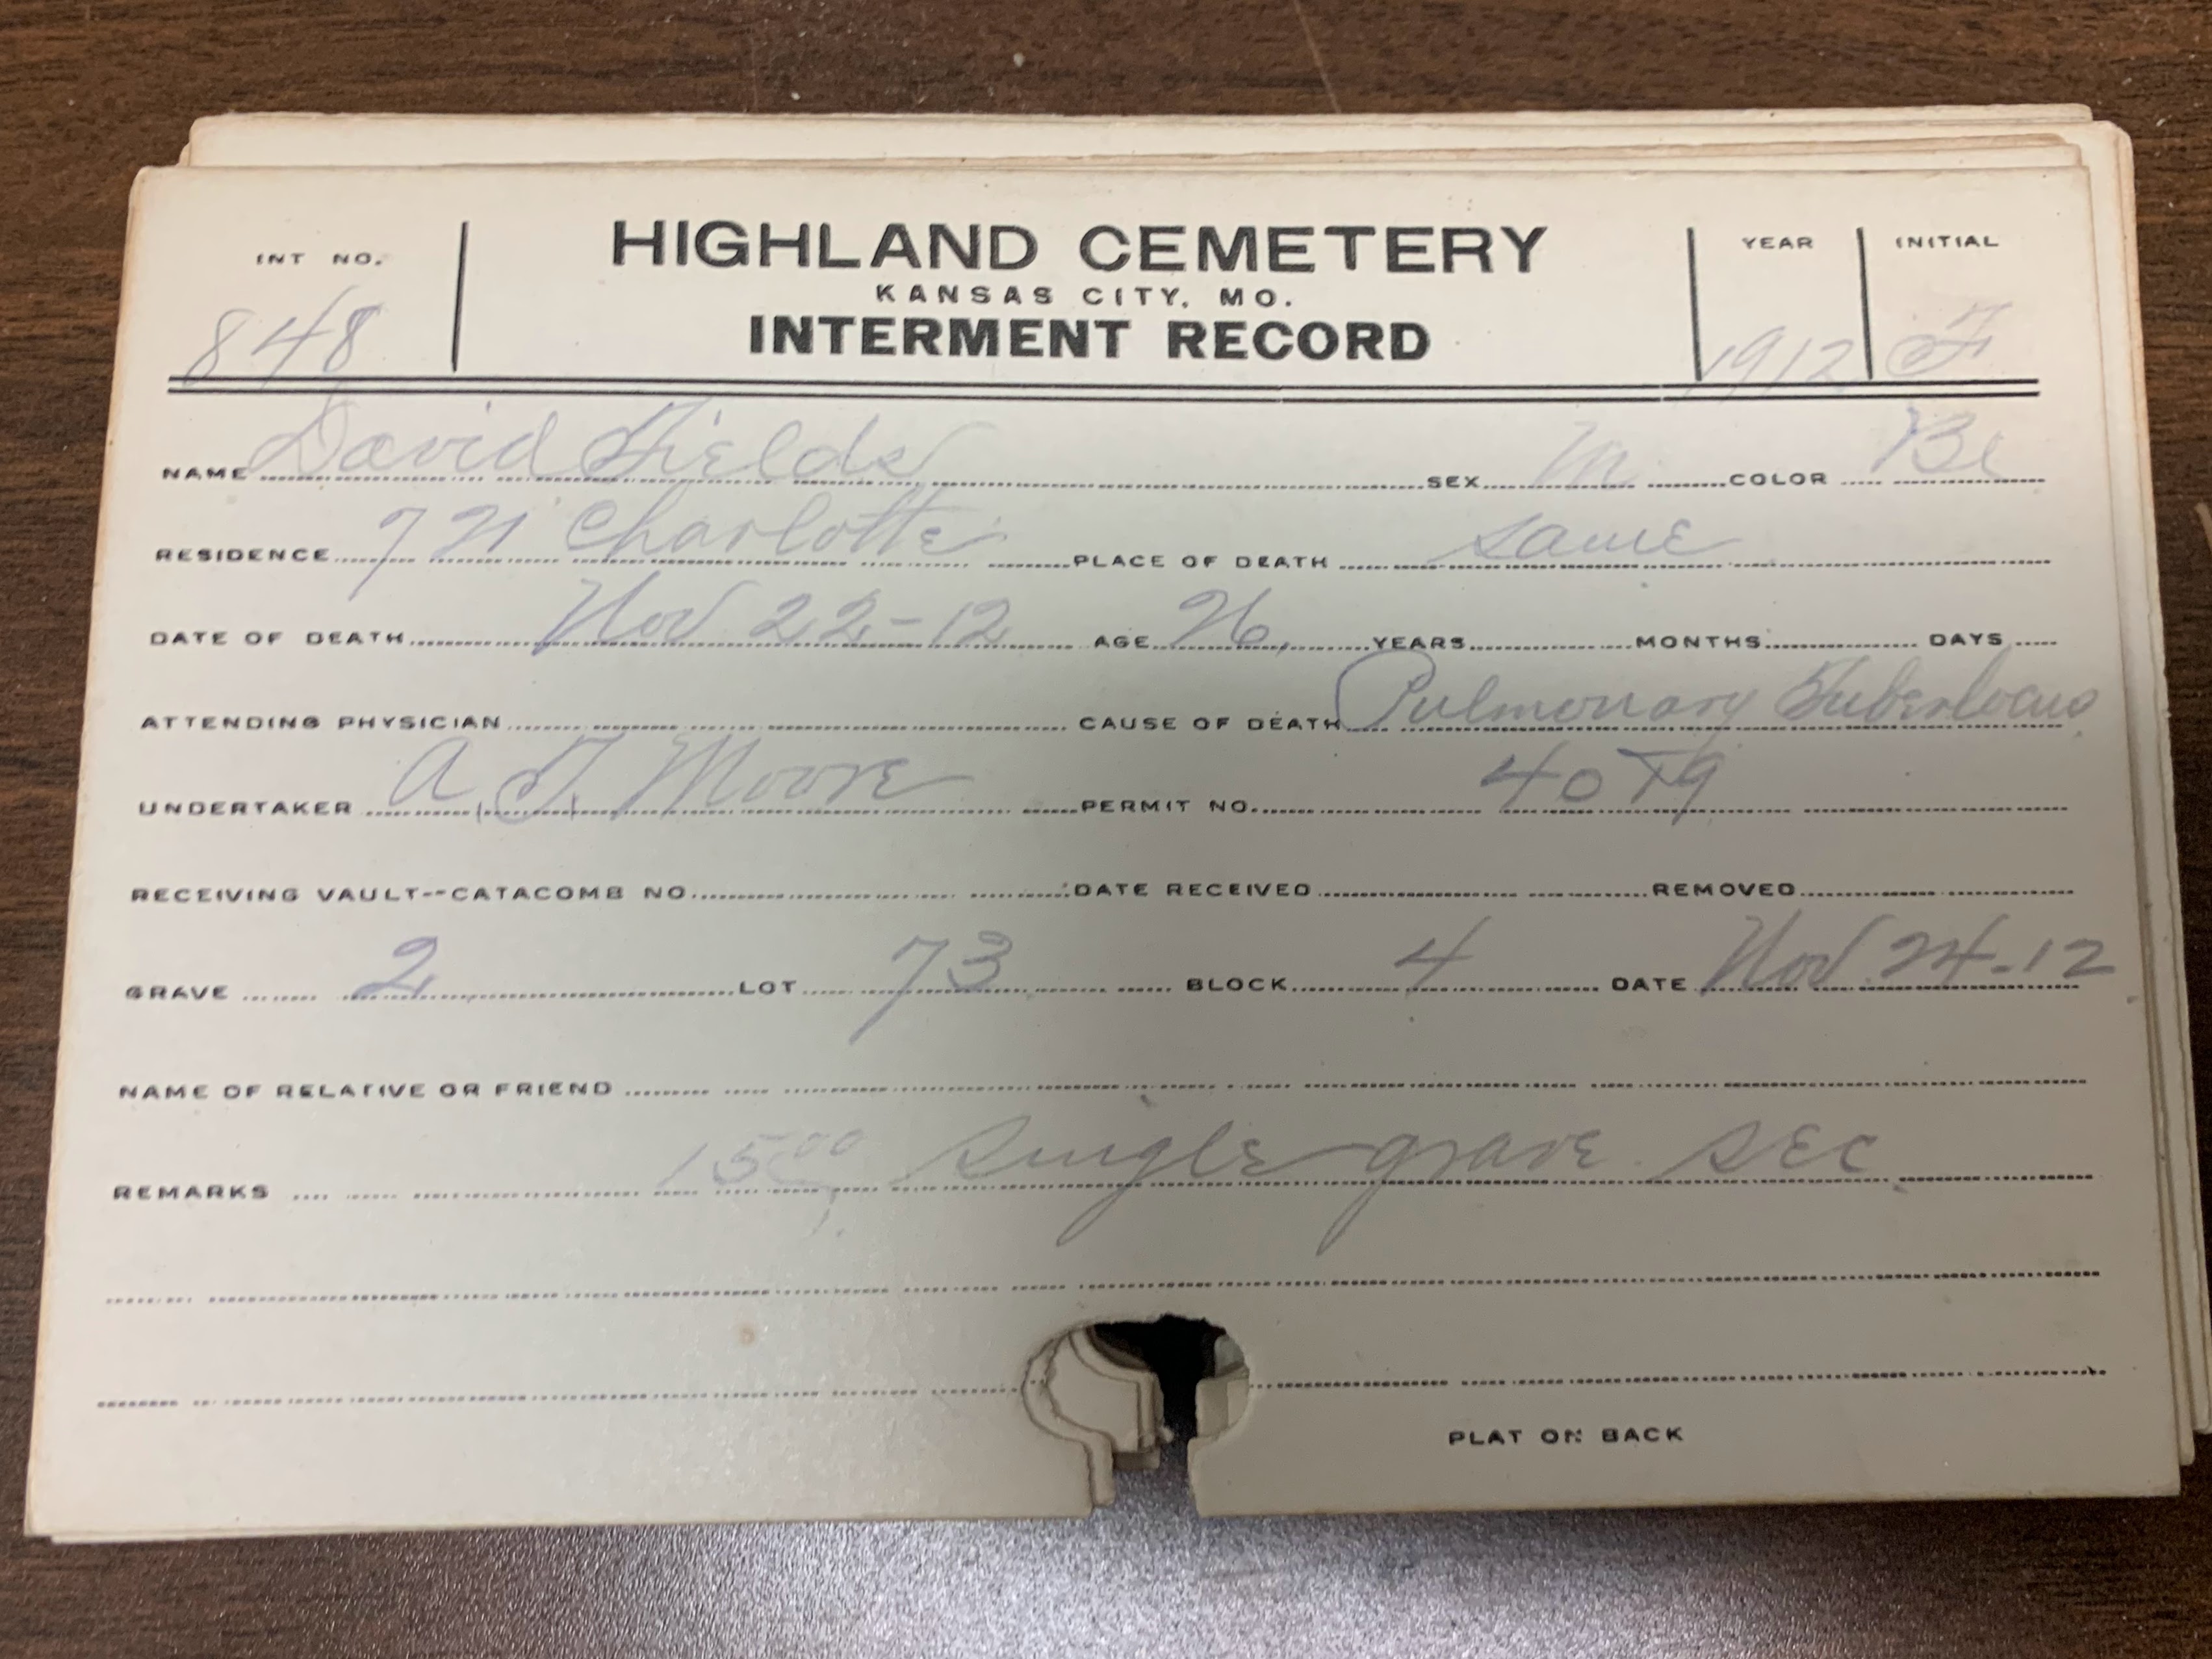 INT NO. HIGHLAND CEMETERY YEAR INITIAL
KANSAS CITY, MO.
848 INTERMENT RECORD 1912 F
NAME David Fields SEX M COLOR Bl
RESIDENCE 721 Charlotte PLACE OF DEATH same
DATE OF DEATH Nov 22-12 AGE 26 YEARS MONTHS DAYS
ATTENDING PHYSICIAN CAUSE OF DEATH Pulmonary Tuberlocus
UNDERTAKER A. T. Moore PERMIT NO. 4079
RECEIVING VAULT--CATACOMB NO. DATE RECEIVED REMOVED
GRAVE 2 LOT 73 BLOCK 4 DATE Nov 24-12
NAME OF RELATIVE OR FRIEND
REMARKS 15.00 Single grave sec
PLAT ON BACK